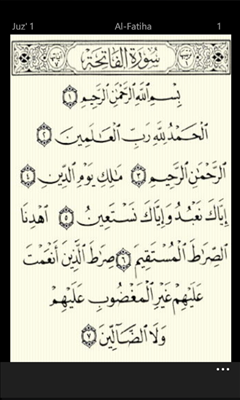 Juz' 1 Al-Fatiha 1
سُورَةُ الْفَاتِحَةِ
بِسْمِ ٱللَّهِ ٱلرَّحْمَٰنِ ٱلرَّحِيمِ ١
ٱلْحَمْدُ لِلَّهِ رَبِّ ٱلْعَٰلَمِينَ ٢
ٱلرَّحْمَٰنِ ٱلرَّحِيمِ ٣ مَٰلِكِ يَوْمِ ٱلدِّينِ ٤
إِيَّاكَ نَعْبُدُ وَإِيَّاكَ نَسْتَعِينُ ٥ ٱهْدِنَا
ٱلصِّرَٰطَ ٱلْمُسْتَقِيمَ ٦ صِرَٰطَ ٱلَّذِينَ أَنْعَمْتَ
عَلَيْهِمْ غَيْرِ ٱلْمَغْضُوبِ عَلَيْهِمْ
وَلَا ٱلضَّآلِّينَ ٧